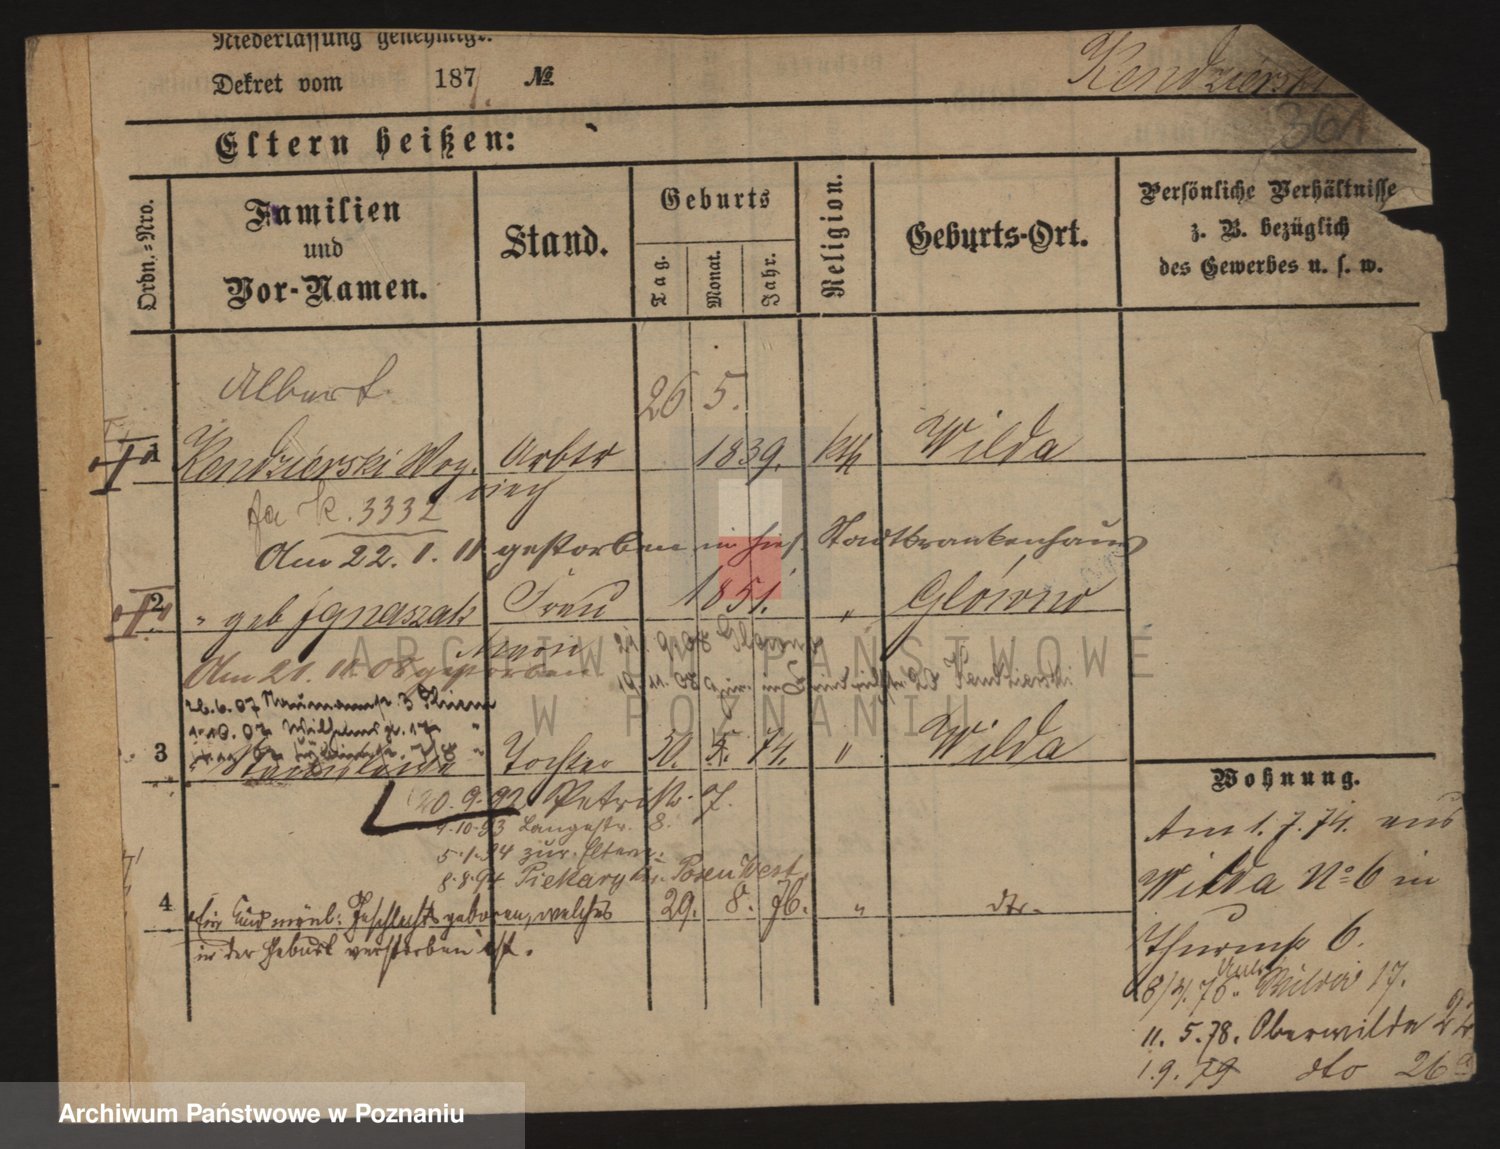 Niederlassung genehmigt.
Dekret vom 187 №
Kendzierski
361
Eltern heißen:
Ordn.-Nro.
Familien
und
Vor-Namen.
Stand.
Geburts
Tag.
Monat.
Jahr.
Religion.
Geburts-Ort.
Persönliche Verhältnisse
z. B. bezüglich
des Gewerbes u. s. w.
Albert 26 5.
1 Kendzierski Woy- Arbtr 1839. kth Wilda
ciech
fa K. 3332
Am 22. 1. 11 gestorben in hies. Stadtkrankenhaus
2 " geb Ignaszak Frau 1851. " Glówno
Am 21. 11. 08 gestorben
26.6.07 Naumannstr. 3
1.10.07 Wilhelmspl. 17
3 Stanislawa Tochter 30. 4. 74. " Wilda
20.9.92 Petristr. 7.
4.10.93 Langestr. 8.
5.1.94 zur. Eltern.
8.8.94 Piekary Posen West
4 Ein Kind männl. Geschlechts geboren, welches 29. 8. 76. " dto.
in der Geburt verstorben ist.
Wohnung.
Am 1. 7. 74. aus
Wilda No 6 in
Thurmstr 6.
8/4. 76. Wilda 17.
11. 5. 78. Oberwilda
1. 9. 79 dto 26a
ARCHIWUM PAŃSTWOWE
W POZNANIU
Archiwum Państwowe w Poznaniu